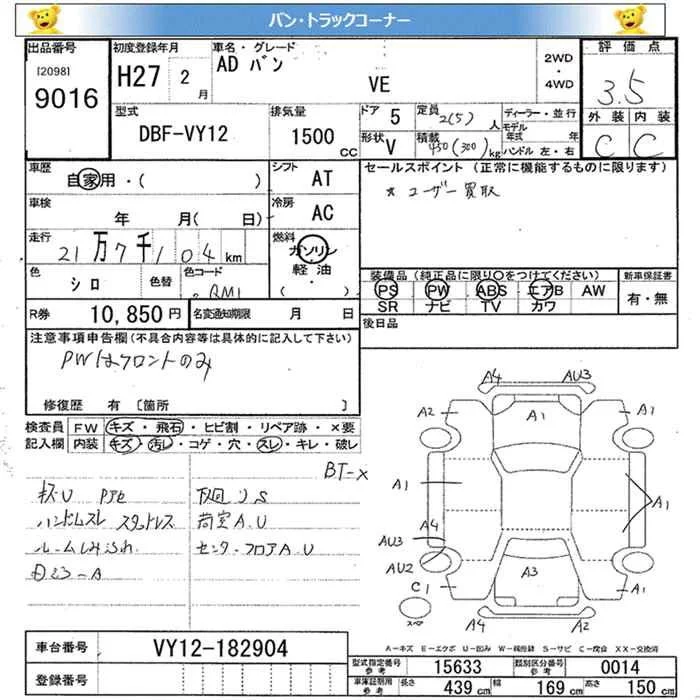 バン・トラックコーナー
出品番号
[2098]
9016
初度登録年月
H27 2月
車名・グレード
AD バン
VE
2WD・4WD
評価点
3.5
外装 内装
C C
型式
DBF-VY12
排気量
1500 CC
ドア 5
定員 2(5)人
形状 V
積載 450(300)kg
ディーラー・並行
モデル年式 年
ハンドル 左・右
車歴
自家用・( )
シフト AT
車検
年 月( 日)
冷房 AC
走行
21万7千104km
燃料
ガソリン
軽油
・( )
色
シロ
色替
色コード
R券 10,850円
名変通知期限 月 日
セールスポイント(正常に機能するものに限ります)
* ユーザー買取
装備品(純正品に限り○をつけてください)
PS PW ABS エアB AW
SR ナビ TV カワ
新車保証書
有・無
後日品
注意事項申告欄(不具合内容等は具体的に記入して下さい)
PWはフロントのみ
修復歴 有 [箇所 ]
検査員記入欄
FW キズ・飛石・ヒビ割・リペア跡・×要
内装 キズ・汚レ・コゲ・穴・スレ・キレ・破レ
BT-×
キズU
下廻りS
ハンドルスレ スタッドレス
荷室A.U
センターフロアA.U
A4 AU3
A2 A1 A1
A1 A1
A4
AU3
AU2
C1
A3
A2 A1
スペ
A4 A2
車台番号 VY12-182904
登録番号
A-キズ E-エクボ U-凹み W-補修跡 S-サビ C-腐食 XX-交換済
型式指定番号 参考 15633
類別区分番号 参考 0014
車庫証明用 参考
長さ 439cm 幅 169cm 高さ 150cm